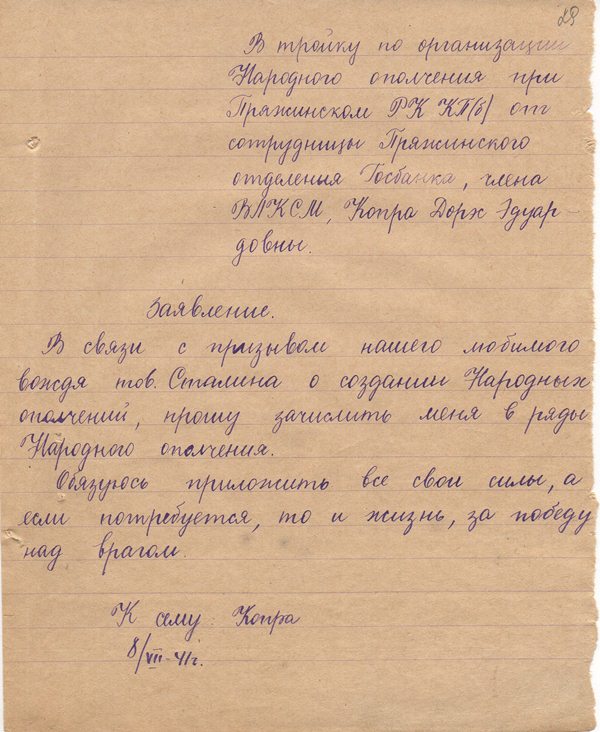 29
В тройку по организации
Народного ополчения при
Пряжинском РК КП(б) от
сотрудницы Пряжинского
отделения Госбанка, члена
ВЛКСМ, Копра Дорх Эдуар-
довны.
Заявление.
В связи с призывом нашего любимого
вождя тов. Сталина о создании Народных
ополчений, прошу зачислить меня в ряды
Народного ополчения.
Обязуюсь приложить все свои силы, а
если потребуется, то и жизнь, за победу
над врагом.
К сему: Копра
8/VII-41г.